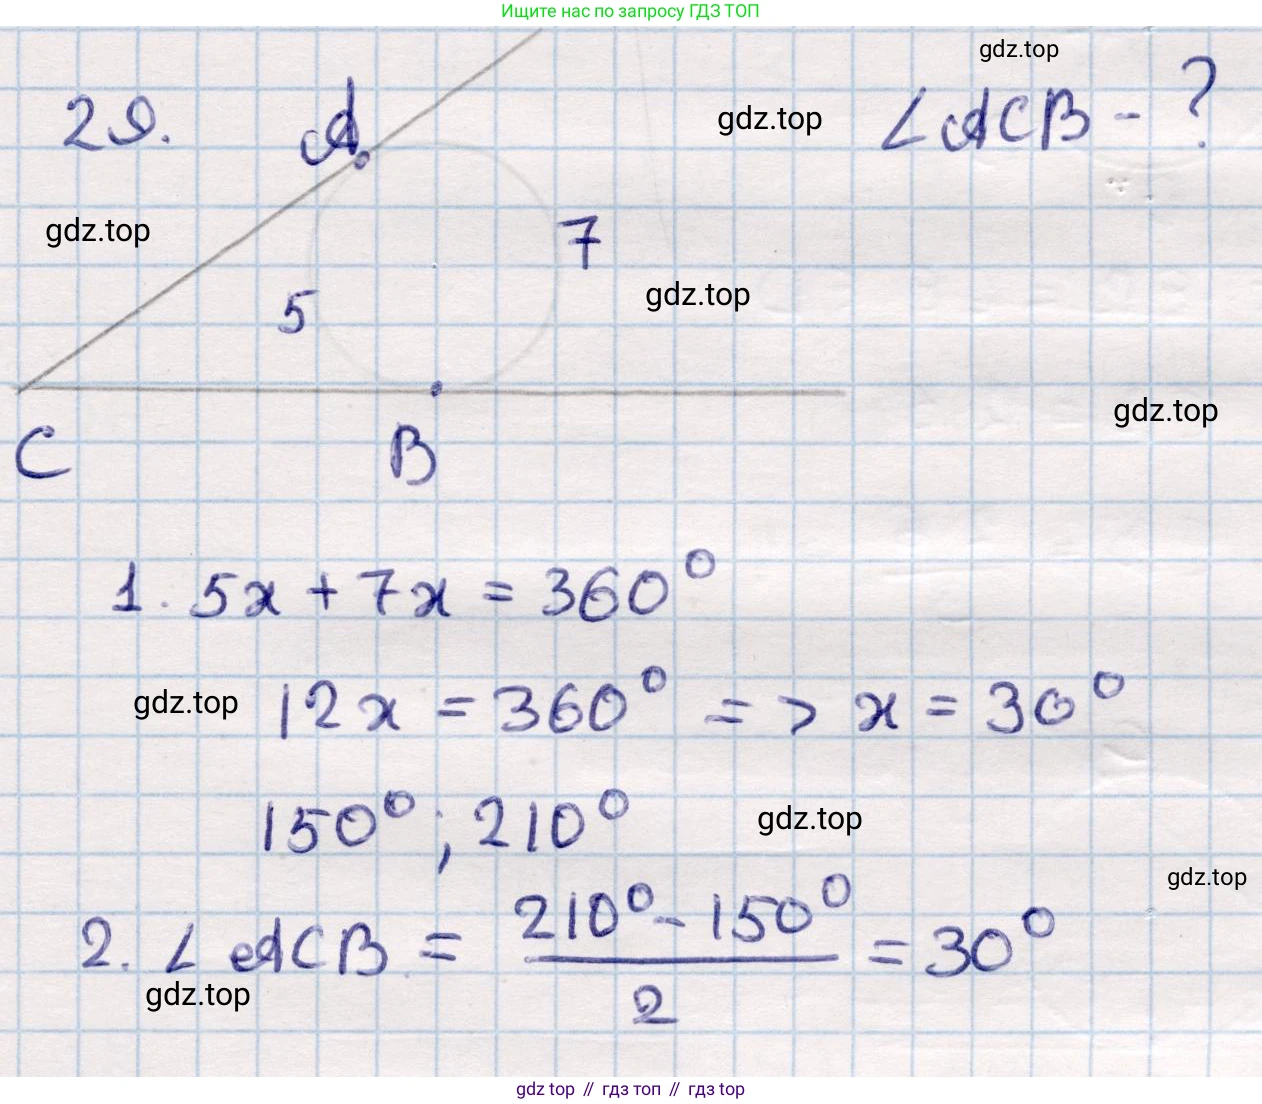 Ищите нас по запросу ГДЗ ТОП
gdz.top
29. A ∠ACB - ?
gdz.top
gdz.top
7
gdz.top
5
gdz.top
C B
1. 5x + 7x = 360°
gdz.top 12x = 360° => x = 30°
150° ; 210° gdz.top
gdz.top
2. ∠ACB = (210° - 150°)/2 = 30°
gdz.top
gdz top // гдз топ // gdz top